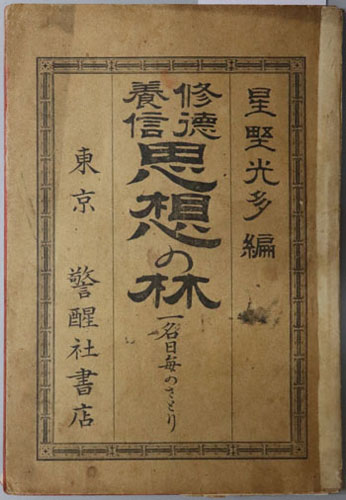 星野光多編
修德
養信
思想の林
一名日每のさとり
東京 警醒社書店